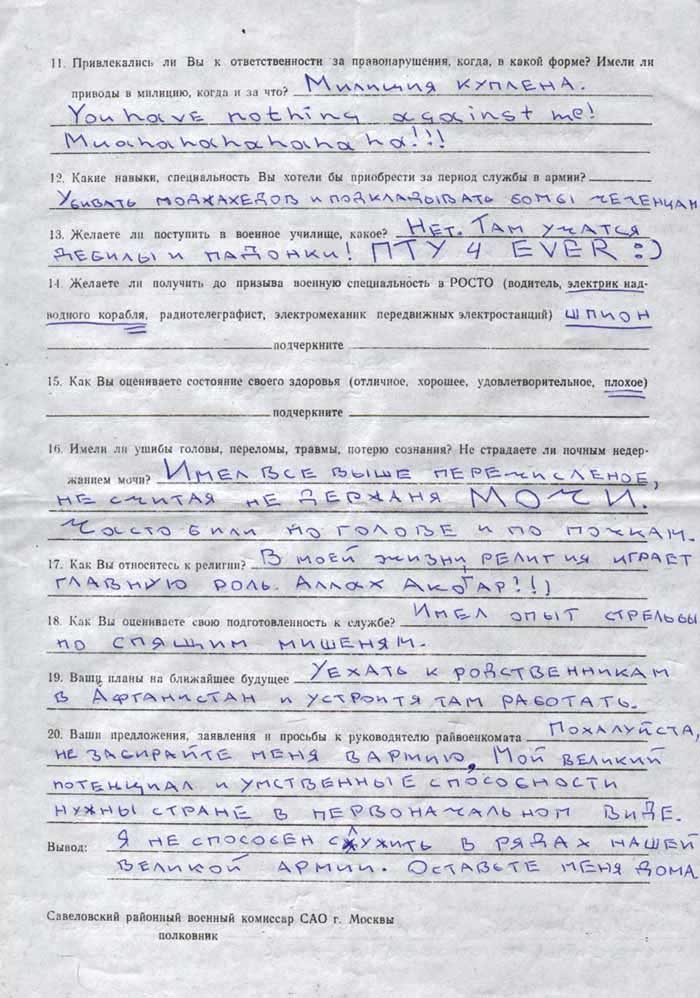 11. Привлекались ли Вы к ответственности за правонарушения, когда, в какой форме? Имели ли
приводы в милицию, когда и за что? Милиция куплена.
You have nothing against me!
Muahahahahahaha!!!
12. Какие навыки, специальность Вы хотели бы приобрести за период службы в армии?
Убивать моджахедов и подкладывать бомбы чеченцам
13. Желаете ли поступить в военное училище, какое? Нет. Там учатся
дебилы и падонки! ПТУ 4 EVER :)
14. Желаете ли получить до призыва военную специальность в РОСТО (водитель, электрик над-
водного корабля, радиотелеграфист, электромеханик передвижных электростанций) шпион
подчеркните
15. Как Вы оцениваете состояние своего здоровья (отличное, хорошее, удовлетворительное, плохое)
подчеркните
16. Имели ли ушибы головы, переломы, травмы, потерю сознания? Не страдаете ли ночным недер-
жанием мочи? Имел все выше перечисленое,
не считая не держаня МОЧИ.
Часто били по голове и по почкам.
17. Как Вы относитесь к религии? В моей жизни, религия играет
главную роль. Аллах Акбар!!!
18. Как Вы оцениваете свою подготовленность к службе? Имел опыт стрельбы
по спящим мишеням.
19. Ваши планы на ближайшее будущее Уехать к родственникам
в Афганистан и устроится там работать.
20. Ваши предложения, заявления и просьбы к руководителю райвоенкомата Пожалуйста,
не забирайте меня в армию, Мой великий
потенциал и умственные способности
нужны стране в первоначальном виде.
Вывод: Я не способен служить в рядах нашей
великой армии. Оставьте меня дома
Савеловский районный военный комиссар САО г. Москвы
полковник